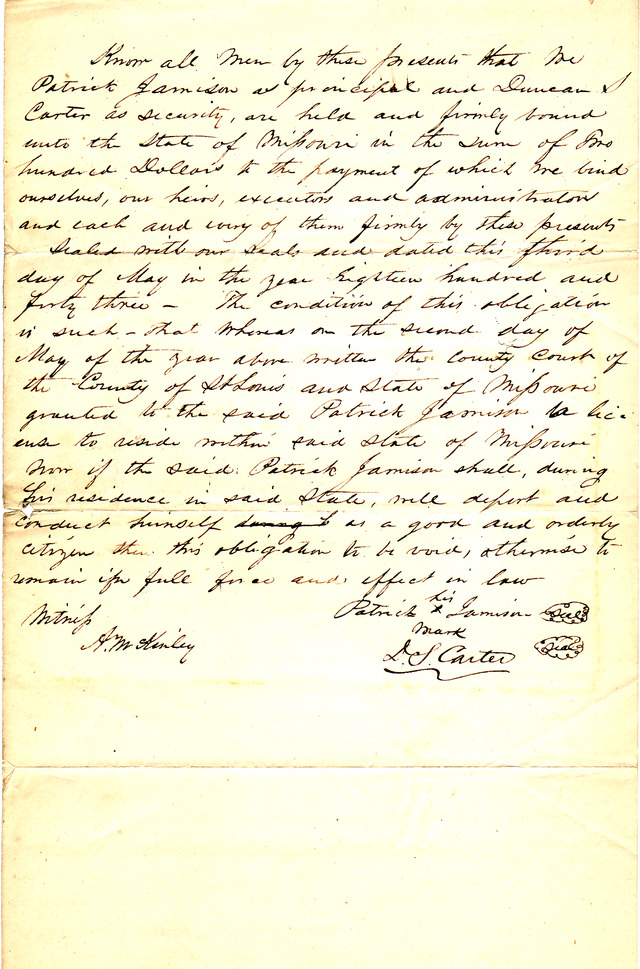 Know all Men by these presents that We
Patrick Jamison as principal and Duncan S
Carter as security, are held and firmly bound
unto the State of Missouri in the sum of Two
hundred Dollars to the payment of which we bind
ourselves, our heirs, executors and administrators
and each and every of them firmly by these presents
Sealed with our seals and dated this third
day of May in the year Eighteen hundred and
forty three – The condition of this obligation
is such – that Whereas on the second day of
May of the year above written the County Court of
the County of St Louis and State of Missouri
granted to the said Patrick Jamison a lic-
ense to reside within said State of Missouri
Now if the said Patrick Jamison shall, during
his residence in said State, well deport and
conduct himself as a good and orderly
citizen then this obligation to be void, otherwise to
remain in full force and effect in law
Witness
A. McKinley
Patrick his x Jamison Seal
mark
D. S. Carter Seal